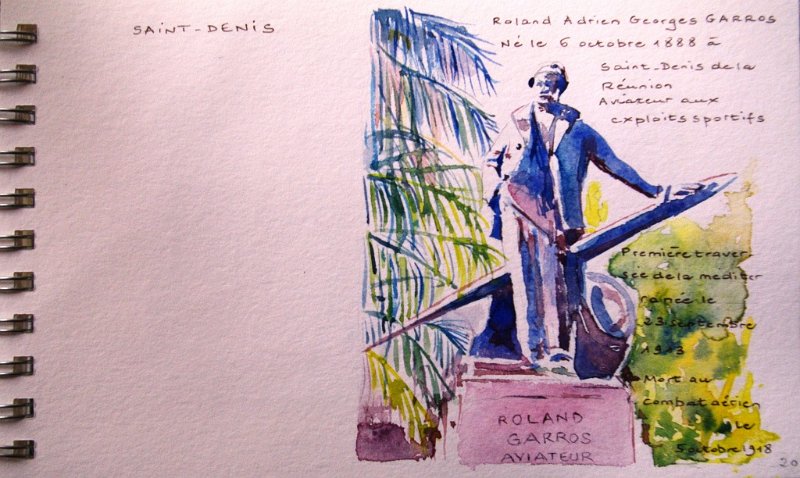 SAINT-DENIS
Roland Adrien Georges GARROS
Né le 6 octobre 1888 à
Saint-Denis de la
Réunion
Aviateur aux
exploits sportifs
Première traver
sée de la mediter
ranée le
23 septembre
1913
Mort au
combat aérien
le
5 octobre 1918
ROLAND
GARROS
AVIATEUR
20